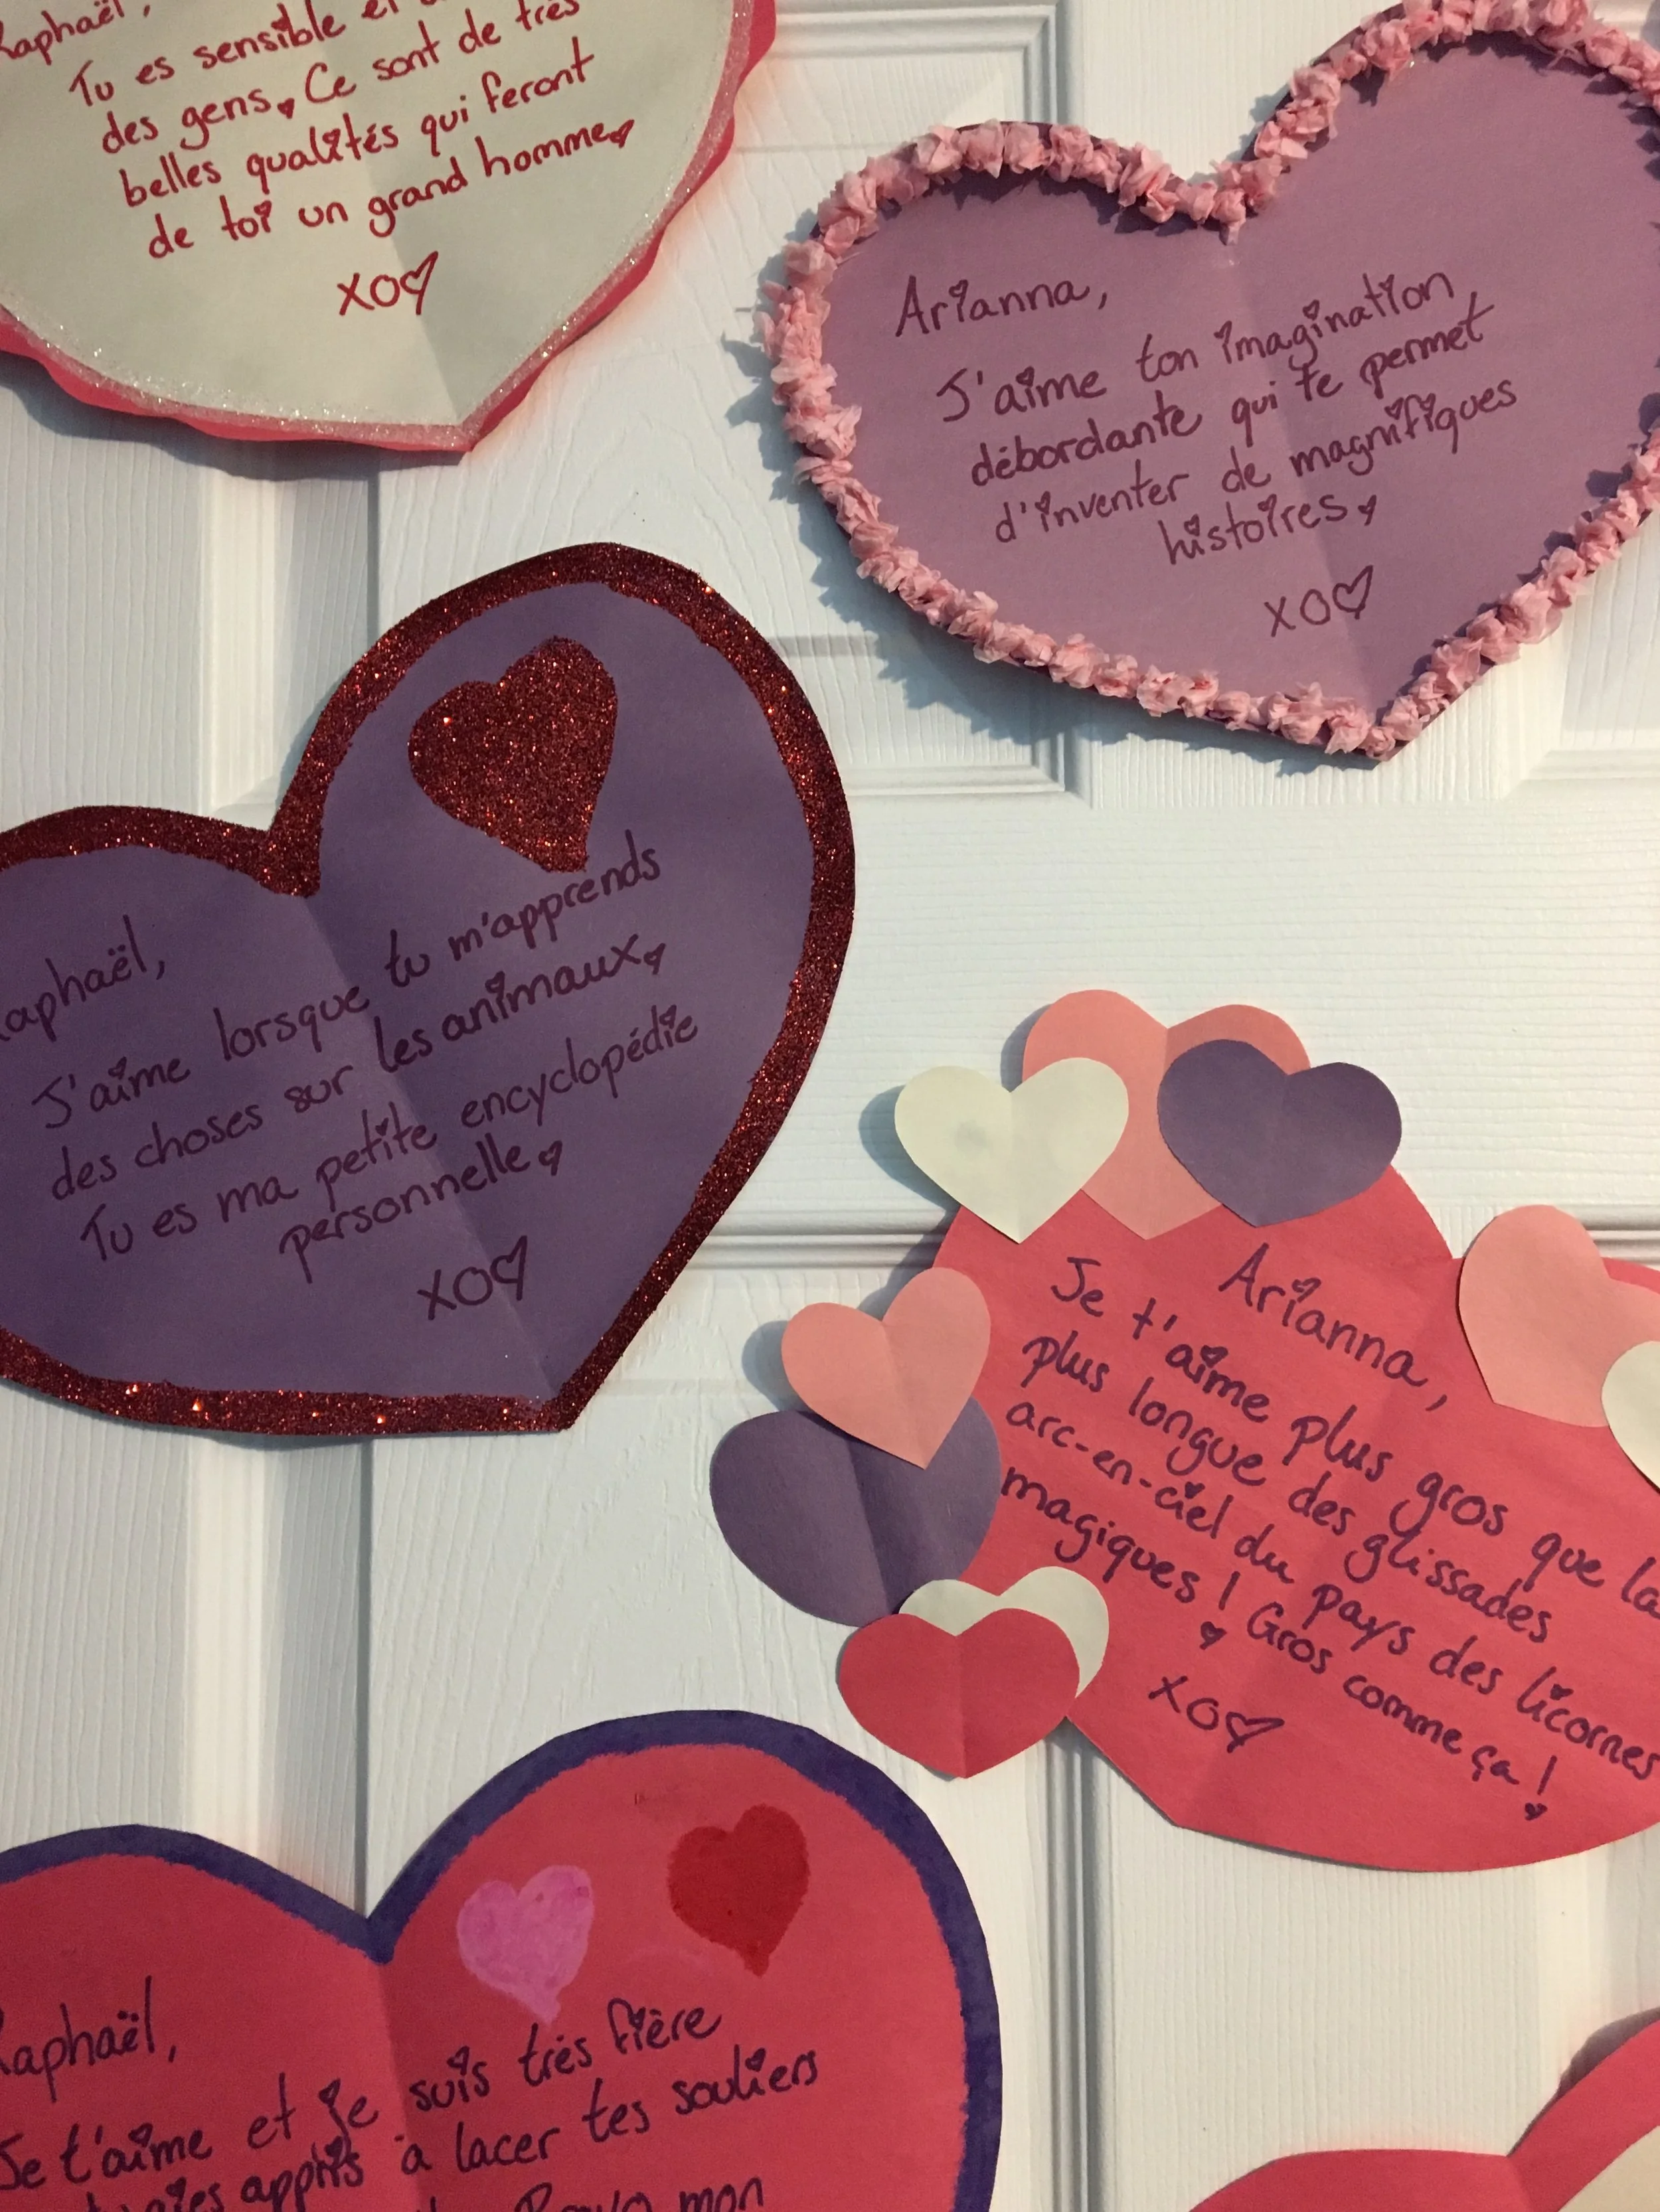 Raphaël,
Tu es sensible et
des gens. Ce sont de très
belles qualités qui feront
de toi un grand homme.
XO♡
Arianna,
J'aime ton imagination
débordante qui te permet
d'inventer de magnifiques
histoires.
XO♡
Raphaël,
J'aime lorsque tu m'apprends
des choses sur les animaux.
Tu es ma petite encyclopédie
personnelle.
XO♡
Arianna,
Je t'aime plus gros que la
plus longue des glissades
arc-en-ciel du pays des licornes
magiques! Gros comme ça!
XO♡
Raphaël,
Je t'aime et je suis très fière
appris à lacer tes souliers
mon